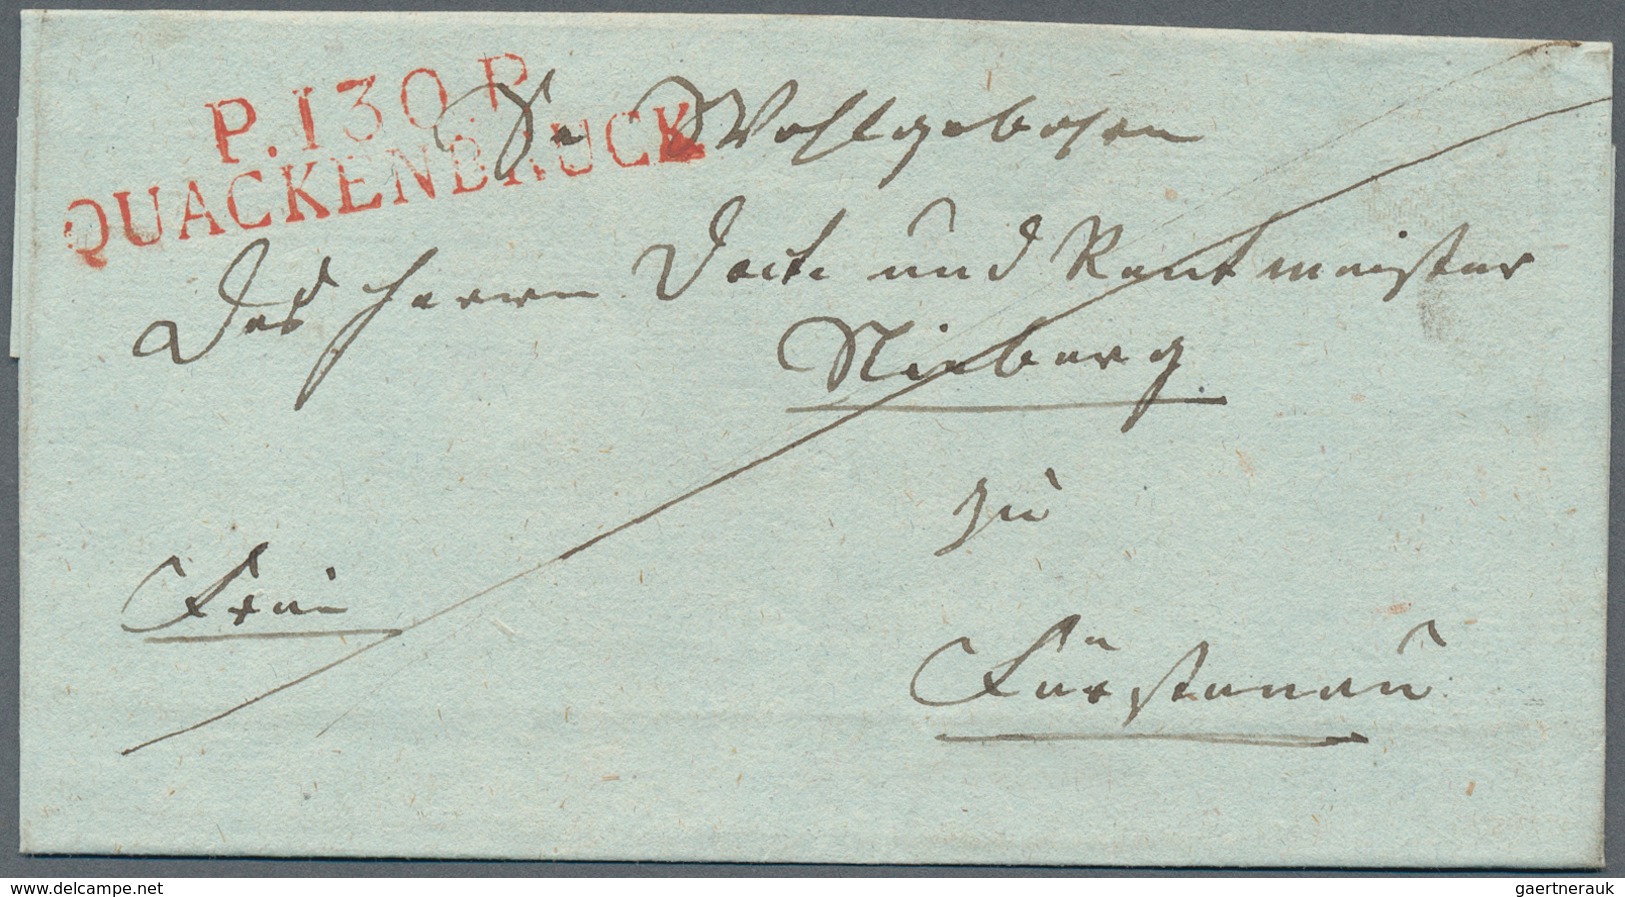 P.130.P.
QUACKENBRUCK
Sr Wohlgeboren
Des Herrn Voits und Rentmeister
Nieberg
zu
Fürstenau
Frei
www.delcampe.net
gaertnerauk